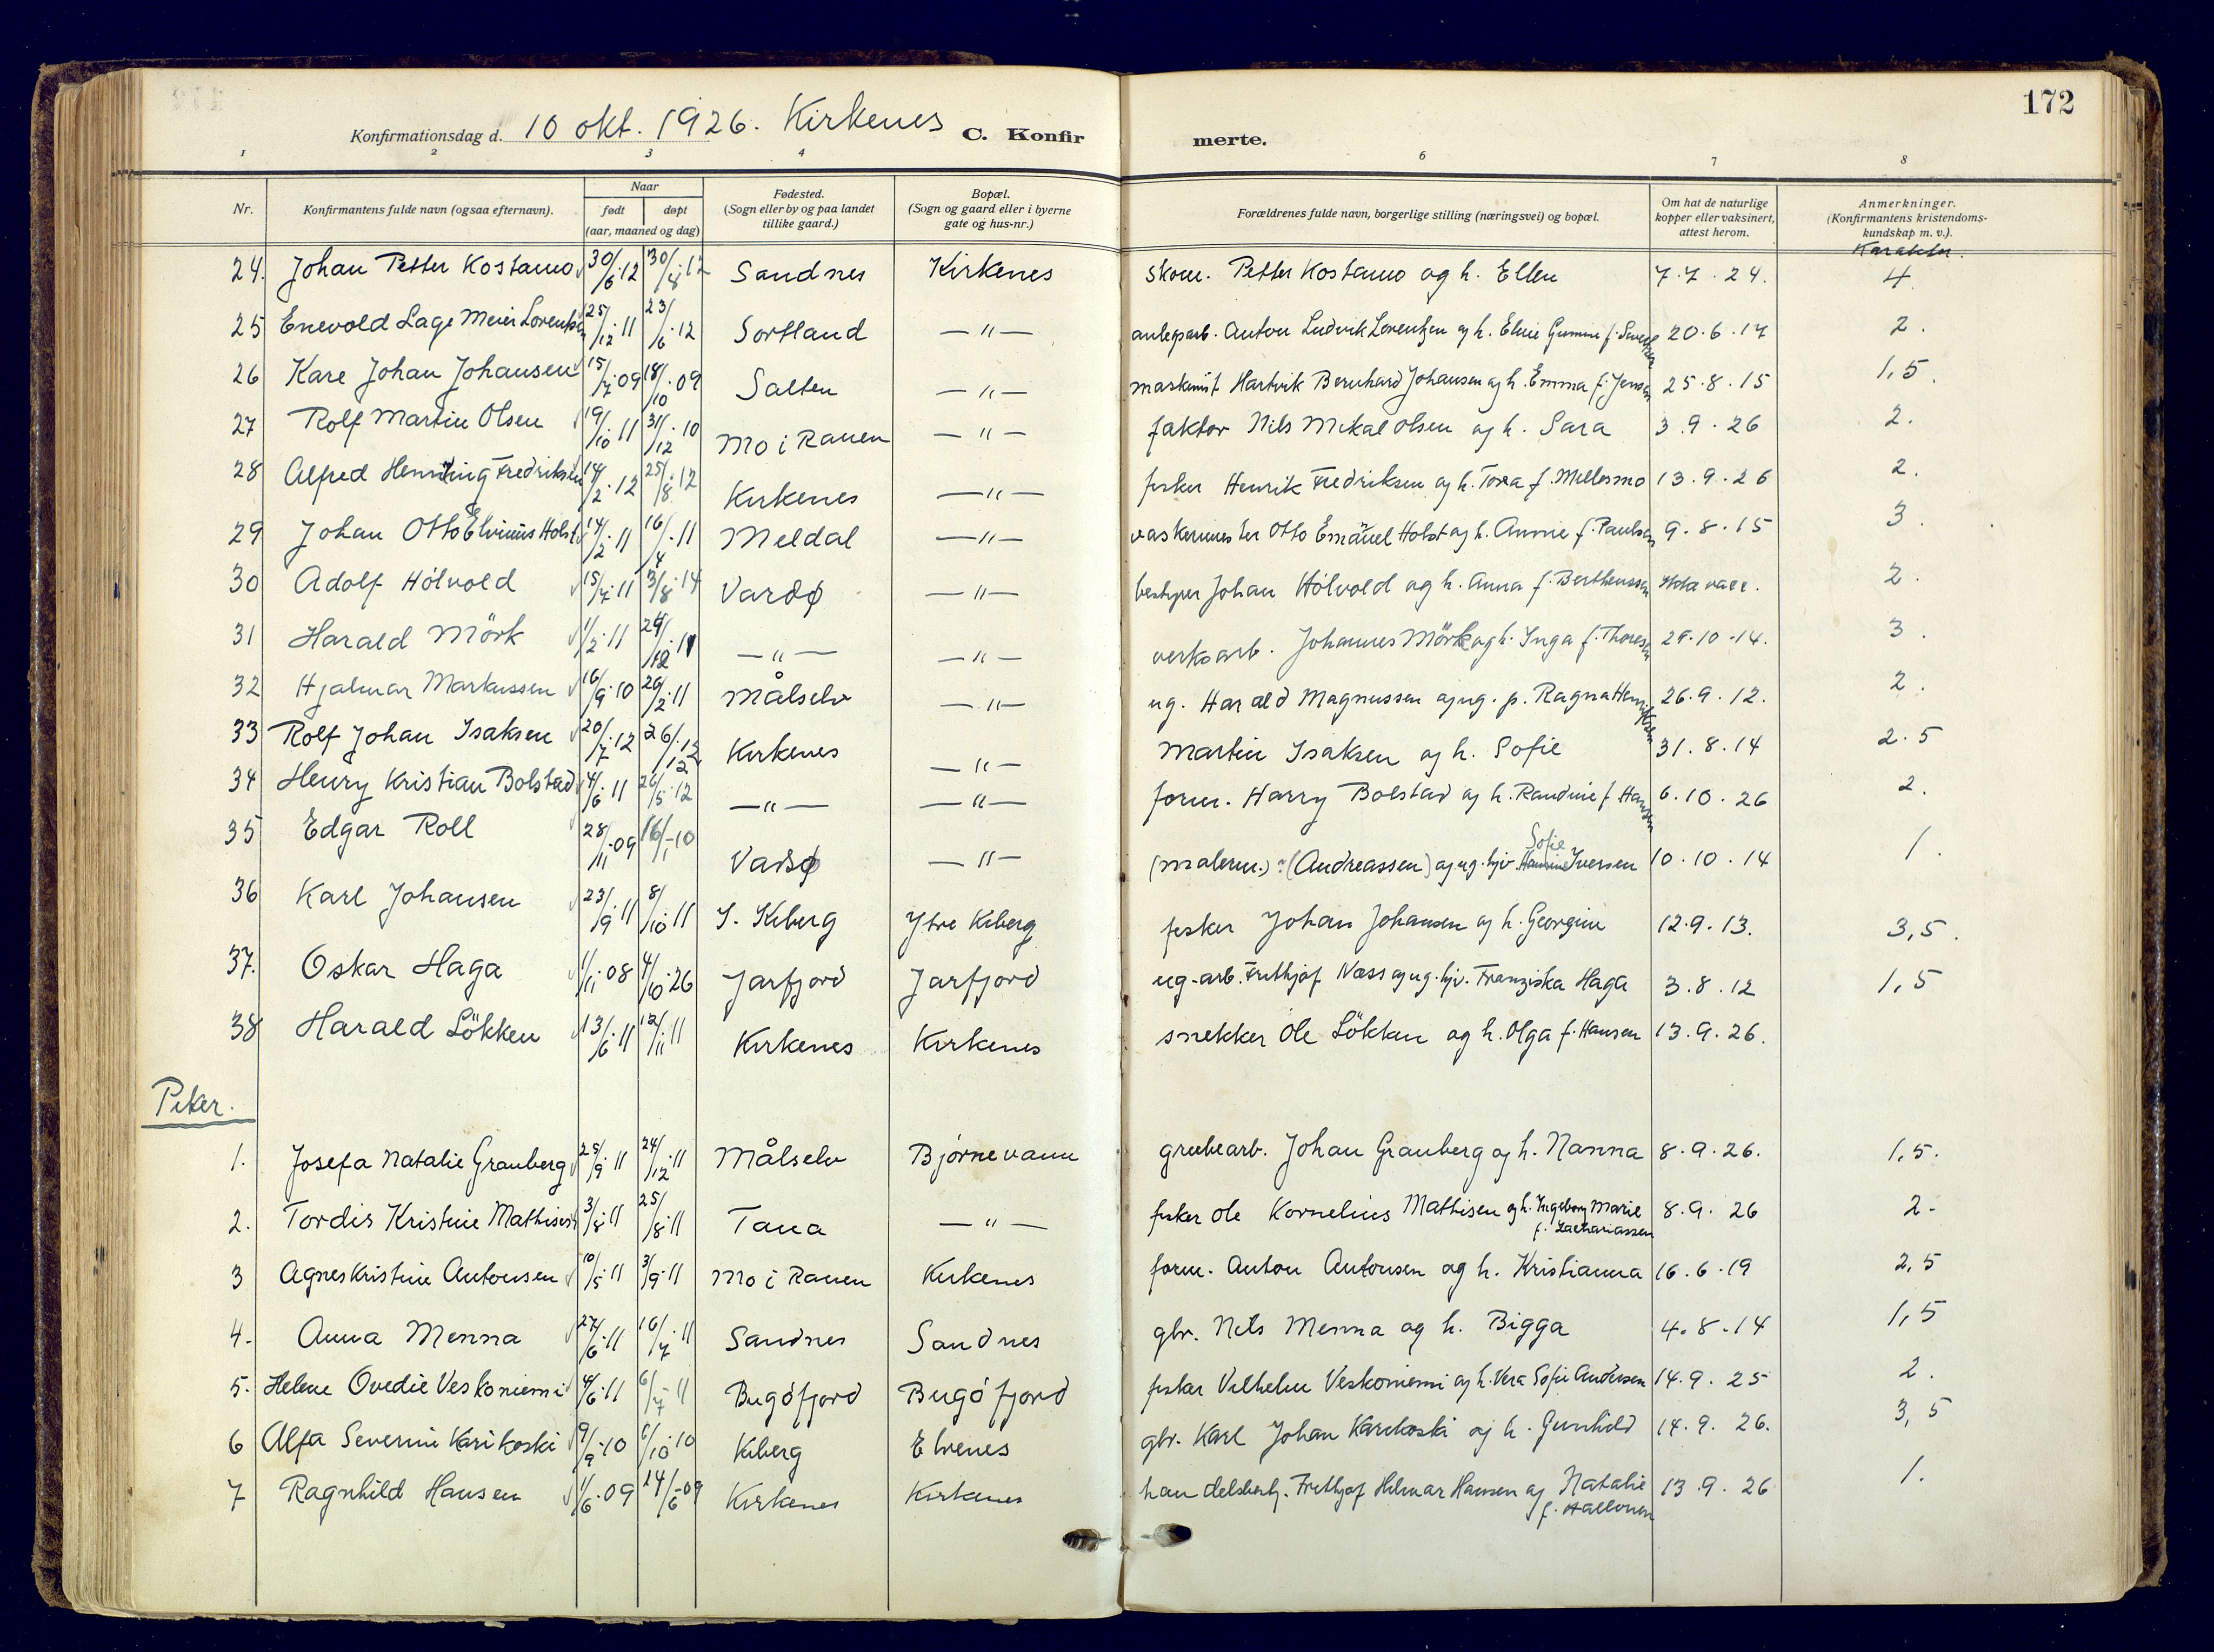 172
Konfirmationsdag d. 10 okt. 1926. Kirkenes C. Konfir merte.
1 2 3 4 6 7 8
Nr. Konfirmantens fulde navn (ogsaa efternavn). Naar født døpt (aar, maaned og dag) Fødested. (Sogn eller by og paa landet tillike gaard.) Bopæl. (Sogn og gaard eller i byerne gate og hus-nr.) Forældrenes fulde navn, borgerlige stilling (næringsvei) og bopæl. Om hat de naturlige kopper eller vaksinert, attest herom. Anmerkninger. (Konfirmantens kristendoms-kundskap m. v.). Karakter.
24. Johan Petter Kostamo 30/6.12 30/8.12 Sandnes Kirkenes skom. Petter Kostamo og h. Ellen 7.7.24. 4
25 Enevold Lage Meier Lorentsen 25/12.11 23/6.12 Sortland —"— anlegsarb. Anton Ludvik Lorentzen og h. Eline Gurine f. 20.6.17 2.
26 Kare Johan Johansen 15/7.09 18/10.09 Salten —"— maskinist Hartvik Bernhard Johansen og h. Emma f. Jensen 25.8.15 1,5.
27 Rolf Martin Olsen 19/10.11 31/12.10 Mo i Ranen —"— faktor Nils Mikal Olsen og h. Sara 3.9.26 2.
28 Alfred Henning Fredriksen 14/2.12 25/8.12 Kirkenes —"— fisker Henrik Fredriksen og h. Tora f. Millesmo 13.9.26 2.
29 Johan Otto Elvinus Holst 14/2.11 16/4.11 Meldal —"— vaskermester Otto Emanuel Holst og h. Annie f. Paulsen 9.8.15 3.
30 Adolf Hölvold 15/7.11 3/8.14 Vardø —"— bestyrer Johan Hölvold og h. Anna f. Bertheussen 2.
31 Harald Mörk 1/2.11 29/12.11 —"— —"— verksarb. Johannes Mörk og h. Inga f. Thoresen 29.10.14. 3.
32 Hjalmar Markussen 16/9.10 26/2.11 Målselv —"— ug. Harald Magnussen og ug. p. Ragna Henriksen 26.9.12. 2.
33 Rolf Johan Isaksen 20/7.12 26/12.12 Kirkenes —"— Martin Isaksen og h. Sofie 31.8.14 2.5
34 Henry Kristian Bolstad 4/6.11 26/5.12 —"— —"— form. Harry Bolstad og h. Randine f. Hansen 6.10.26 2.
35 Edgar Roll 28/11.09 16/1-10 Vadsø —"— (malerm.) (Andreassen) og ug. hjv. Sofie Iversen 10.10.14 1.
36 Karl Johansen 23/9.11 8/10.11 Y. Kiberg Ytre Kiberg fisker Johan Johansen og h. Georgine 12.9.13. 3,5.
37. Oskar Haga 1/11.08 4/10.26 Jarfjord Jarfjord ug.-arb. Frithjof Næss og ug. hjv. Franziska Haga 3.8.12 1,5
38 Harald Lökken 13/6.11 12/11.11 Kirkenes Kirkenes snekker Ole Lökken og h. Olga f. Hansen 13.9.26.
Piker.
1. Josefa Natalie Granberg 25/9.11 24/12.11 Målselv Bjørnevann grubearb. Johan Granberg og h. Nanna 8.9.26. 1,5.
2. Tordis Kristine Mathisen 3/8.11 25/8.11 Tana —"— fisker Ole Kornelius Mathisen og h. Ingeborg Marie f. Zachariassen 8.9.26 2-
3 Agnes Kristine Antonsen 10/5.11 3/9.11 Mo i Ranen Kirkenes form. Anton Antonsen og h. Kristianna 16.6.19 2,5
4. Anna Menna 27/6.11 16/7.11 Sandnes Sandnes gbr. Nils Menna og h. Bigga 4.8.14 1,5
5. Helene Ovedie Veskoniemi 4/6.11 6/7-11 Bugöfjord Bugöfjord fisker Vilhelm Veskoniemi og h. Vera Sofie Andersen 14.9.25 2.
6 Alfa Severine Karikoski 9/9.10 6/10.10 Kiberg Elvenes gbr. Karl Johan Karikoski og h. Gunhild 14.9.26. 3,5
7 Ragnhild Hansen 1/6.09 14/6-09 Kirkenes Kirkenes handelsbestj. Frithjof Hilmar Hansen og Natalie f. Hallonen 13.9.26 1.